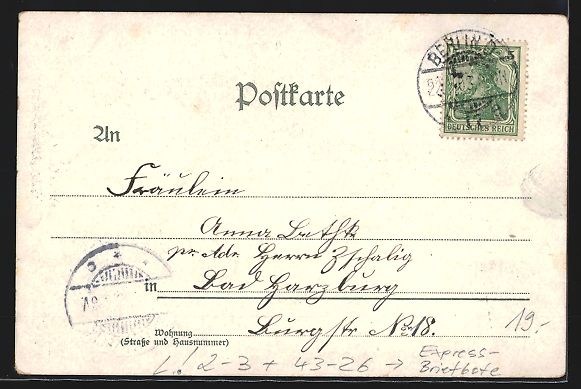 BERLIN
DEUTSCHES REICH
Postkarte
An
Fräulein
Anna Bethk
pr. Adr. Herrn Zschalig
in Bad Harzburg
Wohnung
(Straße und Hausnummer)
Burgstr. No. 18.
19.-
L! 2-3 + 43-26 → Express-
Briefbote